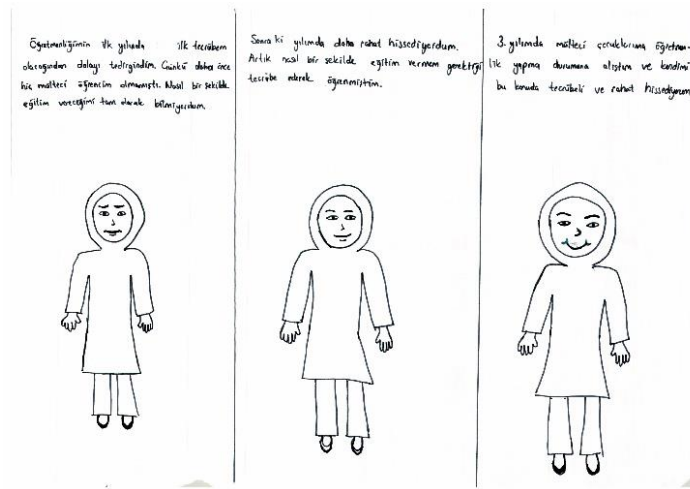 Öğretmenliğimin ilk yılında ilk tecrübem
olacağından dolayı tedirgindim. Çünkü daha önce
hiç mülteci öğrencim olmamıştı. Nasıl bir şekilde
eğitim vereceğimi tam olarak bilmiyordum.
Sonra ki yılımda daha rahat hissediyordum.
Artık nasıl bir şekilde eğitim vermem gerektiği
tecrübe ederek öğrenmiştim.
3. yılımda mülteci çocuklarına öğretmen
lik yapma durumuna alıştım ve kendimi
bu konuda tecrübeli ve rahat hissediyorum